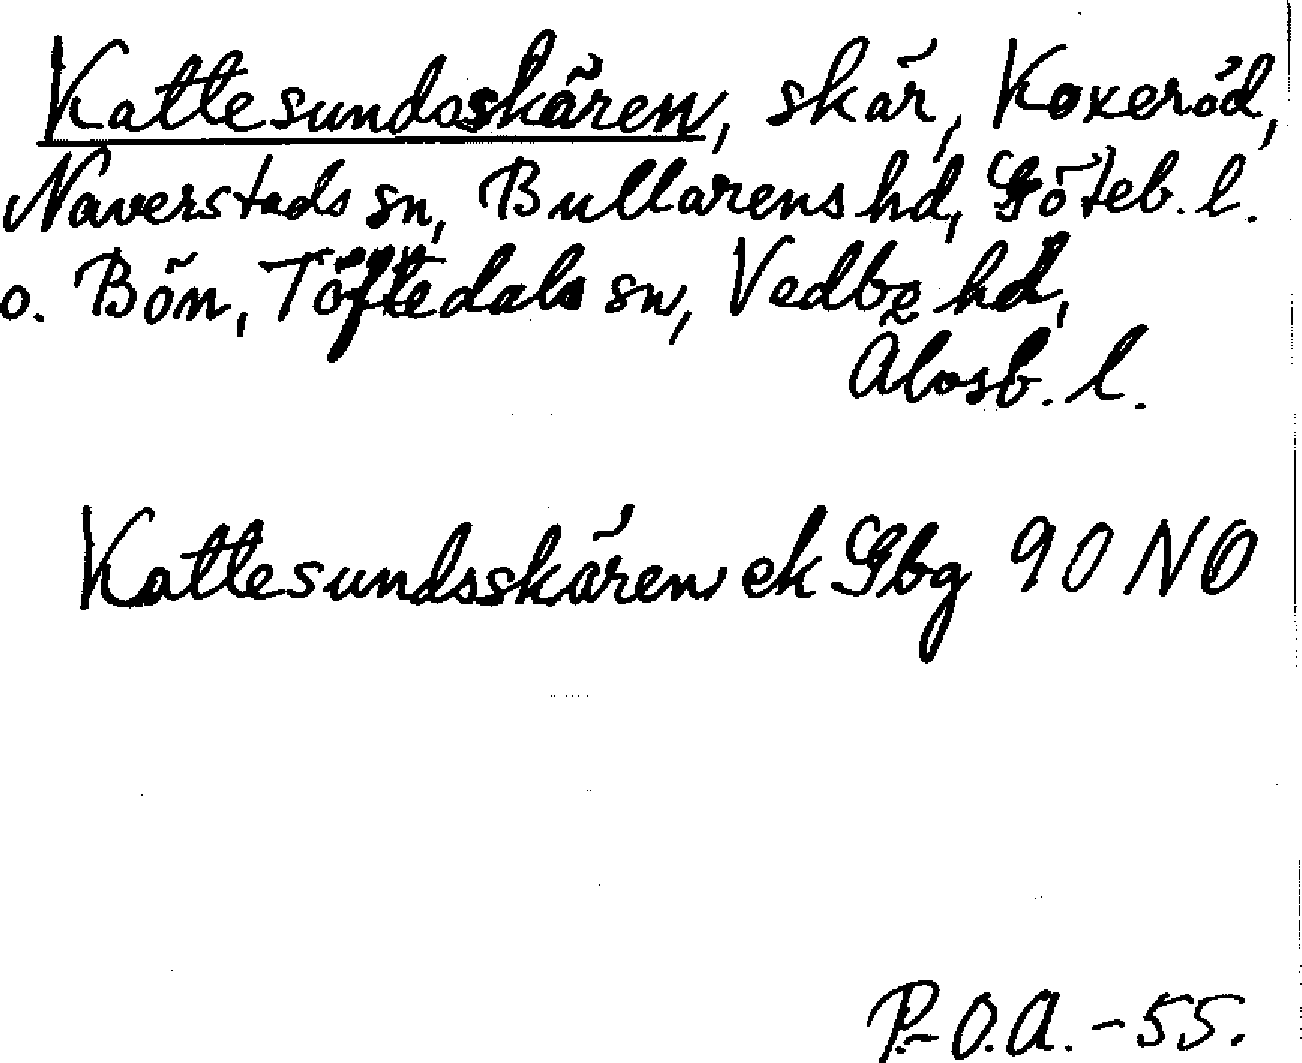 Kattesundsskären, skär, Koxeröd,
Naverstads sn, Bullarens hd, Göteb. l.
o. Bön, Töftedals sn, Vedbo hd,
Älvsb. l.
Kattesundsskären ek Gbg 90 NO
P.-O.A. -55.